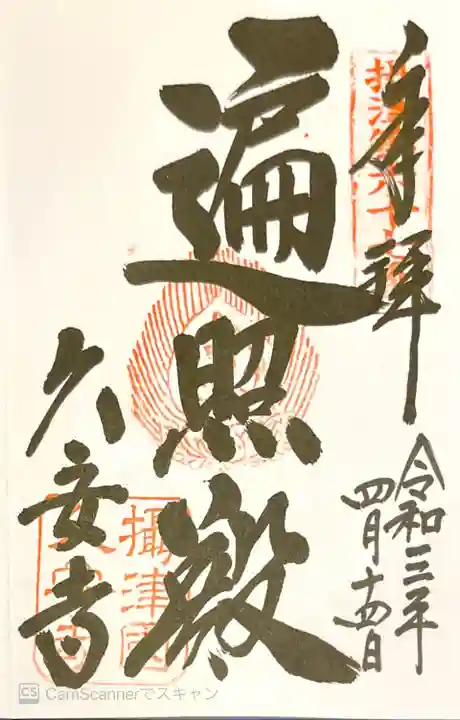 奉拝
令和三年
四月十四日
遍照殿
久安寺
攝津國
CS CamScannerでスキャン